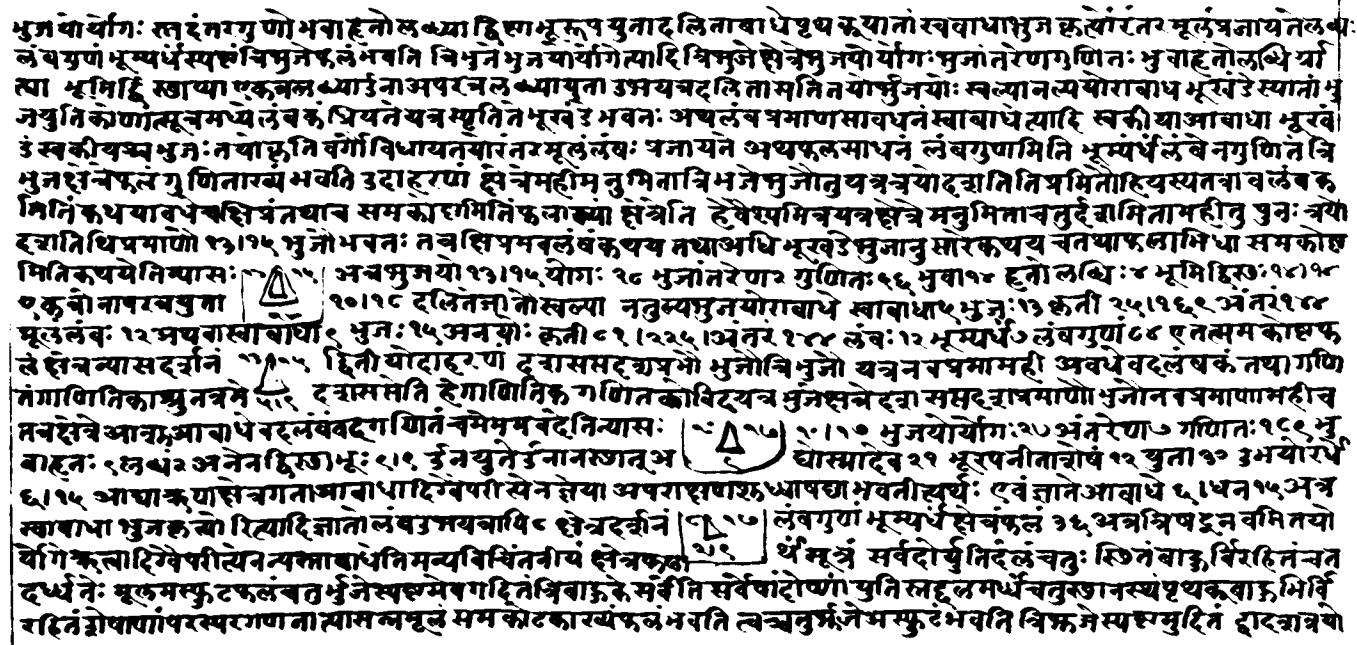 भुजयोर्योगः स्तदंतरगुणो भुवाहृतो लब्ध्या द्विष्ठा भूरूपयुता दलितावाधे पृथक्तयातां स्वबाधाभुजकृत्योरंतरमूलं प्रजायते लंबः
लंबगुणं भूम्यर्धं स्पष्टं त्रिभुजे फलं भवति त्रिभुजे भुजयोर्योगेत्यादि त्रिभुजे क्षेत्रे भुजयोर्योगः भुजांतरेण गुणितः भुवाहृतो लब्धिर्या
त्या भूमिर्द्विस्थाप्या एकत्र लब्ध्योर्उना अपरत्र लब्ध्यायुता उभयत्र दलिता सति तयोर्भुजयोः स्वल्यानल्ययोराबाधे भूखंडे स्यातां भु
जयुतिकोणात्सूत्रमध्ये लंबकं ध्रियते यत्र स्पृतिते भूखंडे भवतः अथ लंबप्रमाणसाधनं स्वाबाधेत्यादि स्वकीया आबाधा भूखं
डं स्वकीयश्च भुजः तयोः कृति वर्गो विधाय तयोरंतरमूलं लंबः प्रजायते अथ फलसाधनं लंबगुणमिति भूम्यर्धं लंबेन गुणितं त्रि
भुजक्षेत्रे फलं गुणिताख्यं भवति उदाहरणं क्षेत्रे मही मनुमिता त्रिभुजे भुजौ तु यत्र त्रयोदशतिथिप्रमितौ हि यस्य तत्रावलंबक
मितिं कथयाबधे च क्षिप्रं तथा च समकोष्टमितिं फलाख्यां क्षेत्रेति हे वैश्यमित्र यत्र क्षेत्रे मनुमिता चतुर्दशमिता मही तु पुनः त्रयो
दशतिथिप्रमाणौ १३।१५ भुजौ भवतः तत्र क्षिप्रमवलंबकं कथय तथा अधि भूखंडे भुजानुसारे कथय च तथा फलाभिधा समकोष्ट
मितिं कथयेति न्यासः १३ १५ अत्र भुजयो १३।१५ योगः २८ भुजांतरेण २ गुणितः ५६ भुवा १४ हृतो लब्धिः ४ भूमिर्द्विस्थः १४।१४
एकत्रोनापरत्रयुता १०।१८ दलित जातो स्वल्या नतुम्यभुजयोराबाधे स्वाबाधा ५ भुजः १३ कृती २५।१६९ अंतरं १४४
मूलं लंबः १२ अथवा स्वाबाधा ९ भुजः १५ अनयोः कृती ८१।२२५।अंतरं १४४ लंबः १२ भूम्यर्धं ७ लंबगुणं ८४ एतत्समकोष्टफ
लं क्षेत्रन्यासदर्शनं १३ १५ द्वितीयोदाहरणं दशसप्तदशप्रमौ भुजौ त्रिभुजौ यत्र नवप्रमा मही अवधे वद लंबकं तथा गणि
तं गाणितिकाशु तत्र मे दशसप्तेति हे गाणितिक गणितकोविद यत्र भुजक्षेत्रे दशसप्तदशप्रमाणौ भुजौ नवप्रमाणा मही च
तत्र क्षेत्रे आशु आबाधे वद लंबं वद गणितं च मे मम वदेति न्यासः १० १७ ९ १०।१७ भुजयोर्योगः २७ अंतरेण ७ गणितः १८९ भु
वाहृतः ९ लब्धं २१ अनेन द्विस्थाभूः ९।९ र्उनयुते र्उनानस्थात् अ द्योस्मादेव २१ भूरपनीता शेषं १२ युता ३० उभयोरर्धं
६।१५ आद्या ऋणाक्षेत्रगता आबाधा दिग्वैपरीत्येन ज्ञेया अपरा भवतीत्यर्थः एवं ज्ञाते आबाधे ६।धन १५ अत्र
स्वाबाधा भुजकृत्योरित्यादिज्ञातो लंब उभयत्रापि ८ क्षेत्रदर्शनं ८ १७ लंबगुणं भूम्यर्धं क्षेत्रं फलं ३६ अत्र नवमितयो
दिग्वैपरीत्येन विचिंतनीयं क्षेत्रफल सूत्रं सर्वदोर्युतिदलं चतुः स्थितं बाहुर्विरहितं च त
मूलमस्फुटफलं चतुर्भुजे स्पष्टमेवमुदितं त्रिबाहुके सर्वेति सर्वेषां दोष्णां युति स्तद्दलमर्धं चतुस्थानस्थं पृथक् बाहुभिर्वि
रहितं शेषाणां परस्परगुणनात्यासन्नमूलं समकोष्टकाख्यं फलं भवति तच्चतुर्भुजे अस्फुटं भवति त्रिभुजे स्पष्टमुदितं द्वादशत्रयो